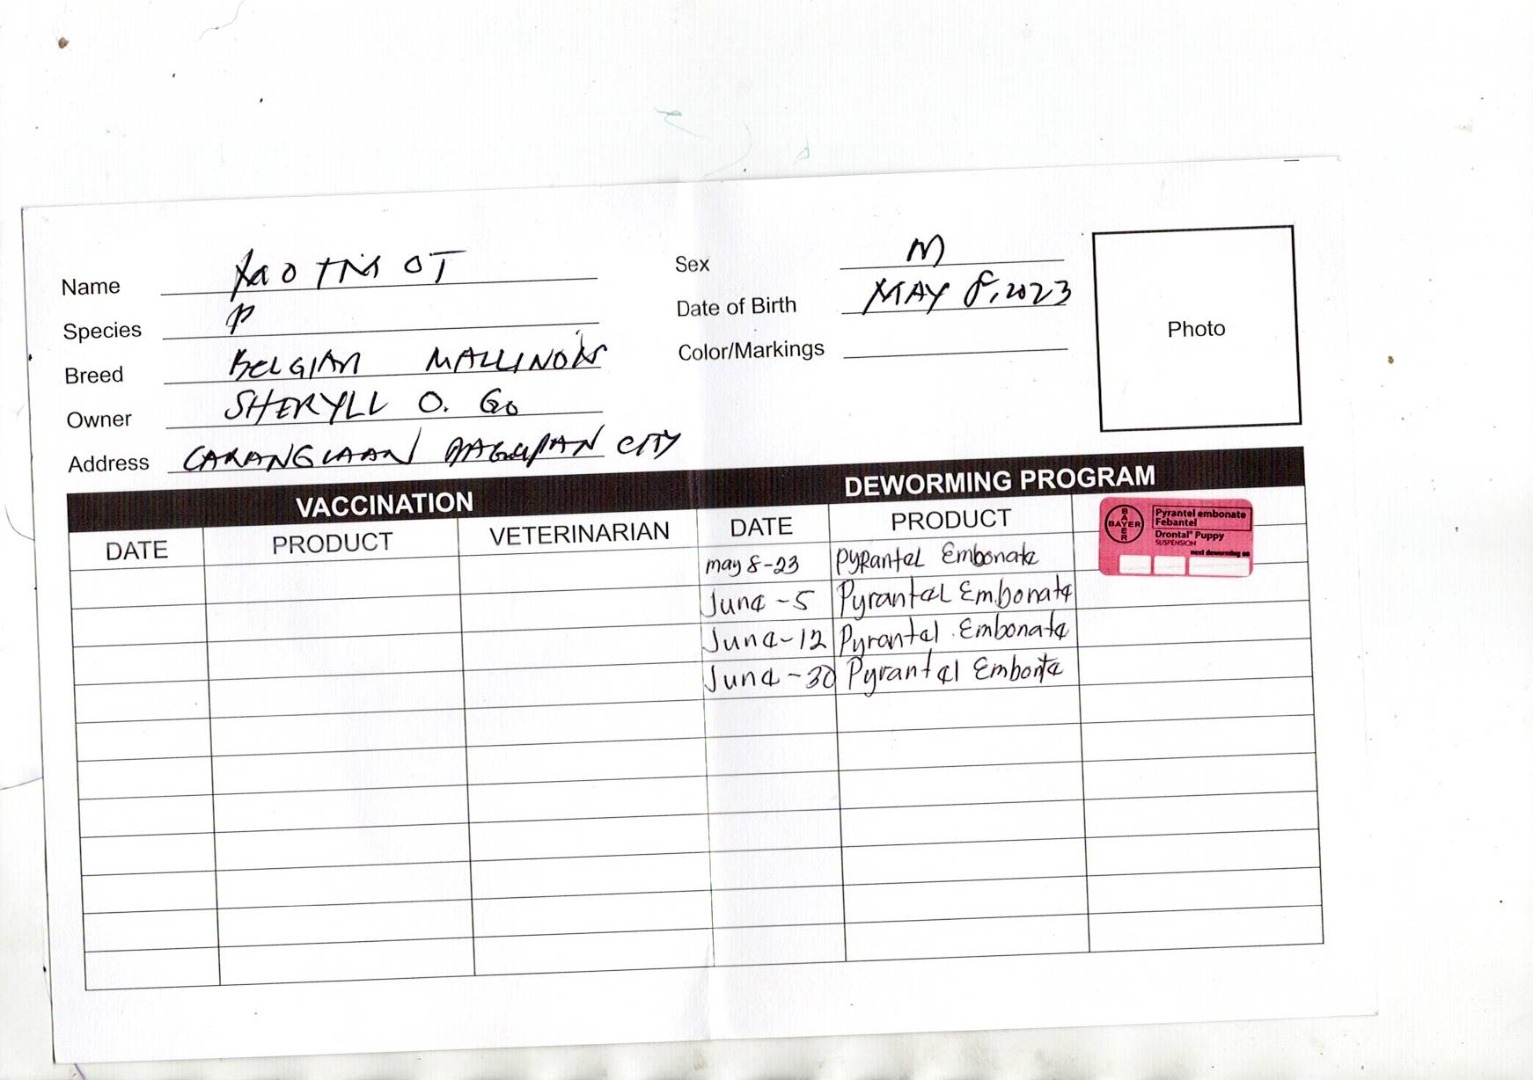 Name
Sex M
Date of Birth MAY 8, 2023
Species
Color/Markings
Breed BELGIAN MALLINOIS
Owner SHERYLL O. GO
Address CARANGLAAN DAGUPAN CITY
Photo
VACCINATION
DEWORMING PROGRAM
DATE PRODUCT VETERINARIAN DATE PRODUCT
BAYER
BAYER
Pyrantel embonate
Febantel
Drontal® Puppy
SUSPENSION
next deworming on
may 8-23 PYRantel Embonate
June -5 Pyrantel Embonate
June-12 Pyrantel Embonate
June-30 Pyrantel Embonte